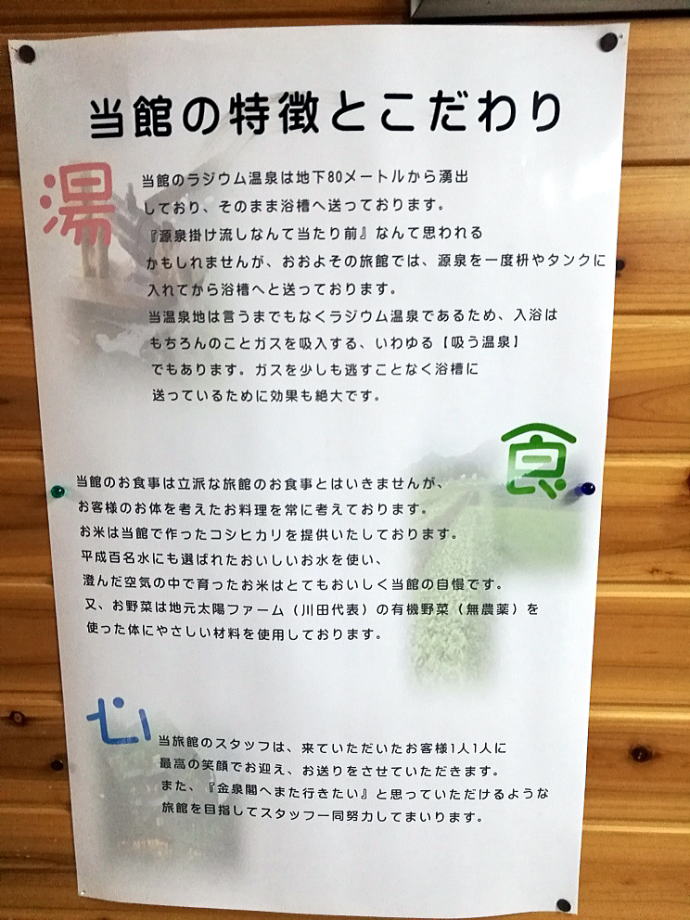 当館の特徴とこだわり
湯
当館のラジウム温泉は地下80メートルから湧出
しており、そのまま浴槽へ送っております。
『源泉掛け流しなんて当たり前』なんて思われる
かもしれませんが、おおよその旅館では、源泉を一度枡やタンクに
入れてから浴槽へと送っております。
当温泉地は言うまでもなくラジウム温泉であるため、入浴は
もちろんのことガスを吸入する、いわゆる【吸う温泉】
でもあります。ガスを少しも逃すことなく浴槽に
送っているために効果も絶大です。
食
当館のお食事は立派な旅館のお食事とはいきませんが、
お客様のお体を考えたお料理を常に考えております。
お米は当館で作ったコシヒカリを提供いたしております。
平成百名水にも選ばれたおいしいお水を使い、
澄んだ空気の中で育ったお米はとてもおいしく当館の自慢です。
又、お野菜は地元太陽ファーム（川田代表）の有機野菜（無農薬）を
使った体にやさしい材料を使用しております。
心
当旅館のスタッフは、来ていただいたお客様1人1人に
最高の笑顔でお迎え、お送りをさせていただきます。
また、『金泉閣へまた行きたい』と思っていただけるような
旅館を目指してスタッフ一同努力してまいります。